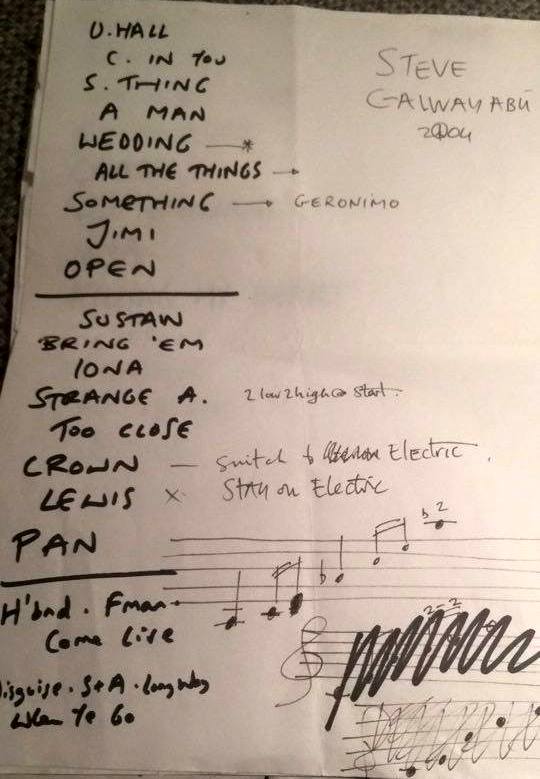 U. HALL
C. IN YOU
S. THING
A MAN
WEDDING → *
ALL THE THINGS →
SOMETHING → GERONIMO
JIMI
OPEN
STEVE
GALWAY ABÚ
2004
SUSTAIN
BRING 'EM
IONA
STRANGE A. 2 low 2 high @ start.
TOO CLOSE
CROWN — Switch to Electric.
LEWIS × STAY on Electric
PAN
b 2
b
H'bnd. Fman.
Come Live
2-2
Disguise. S+A. Longway
When Ye Go